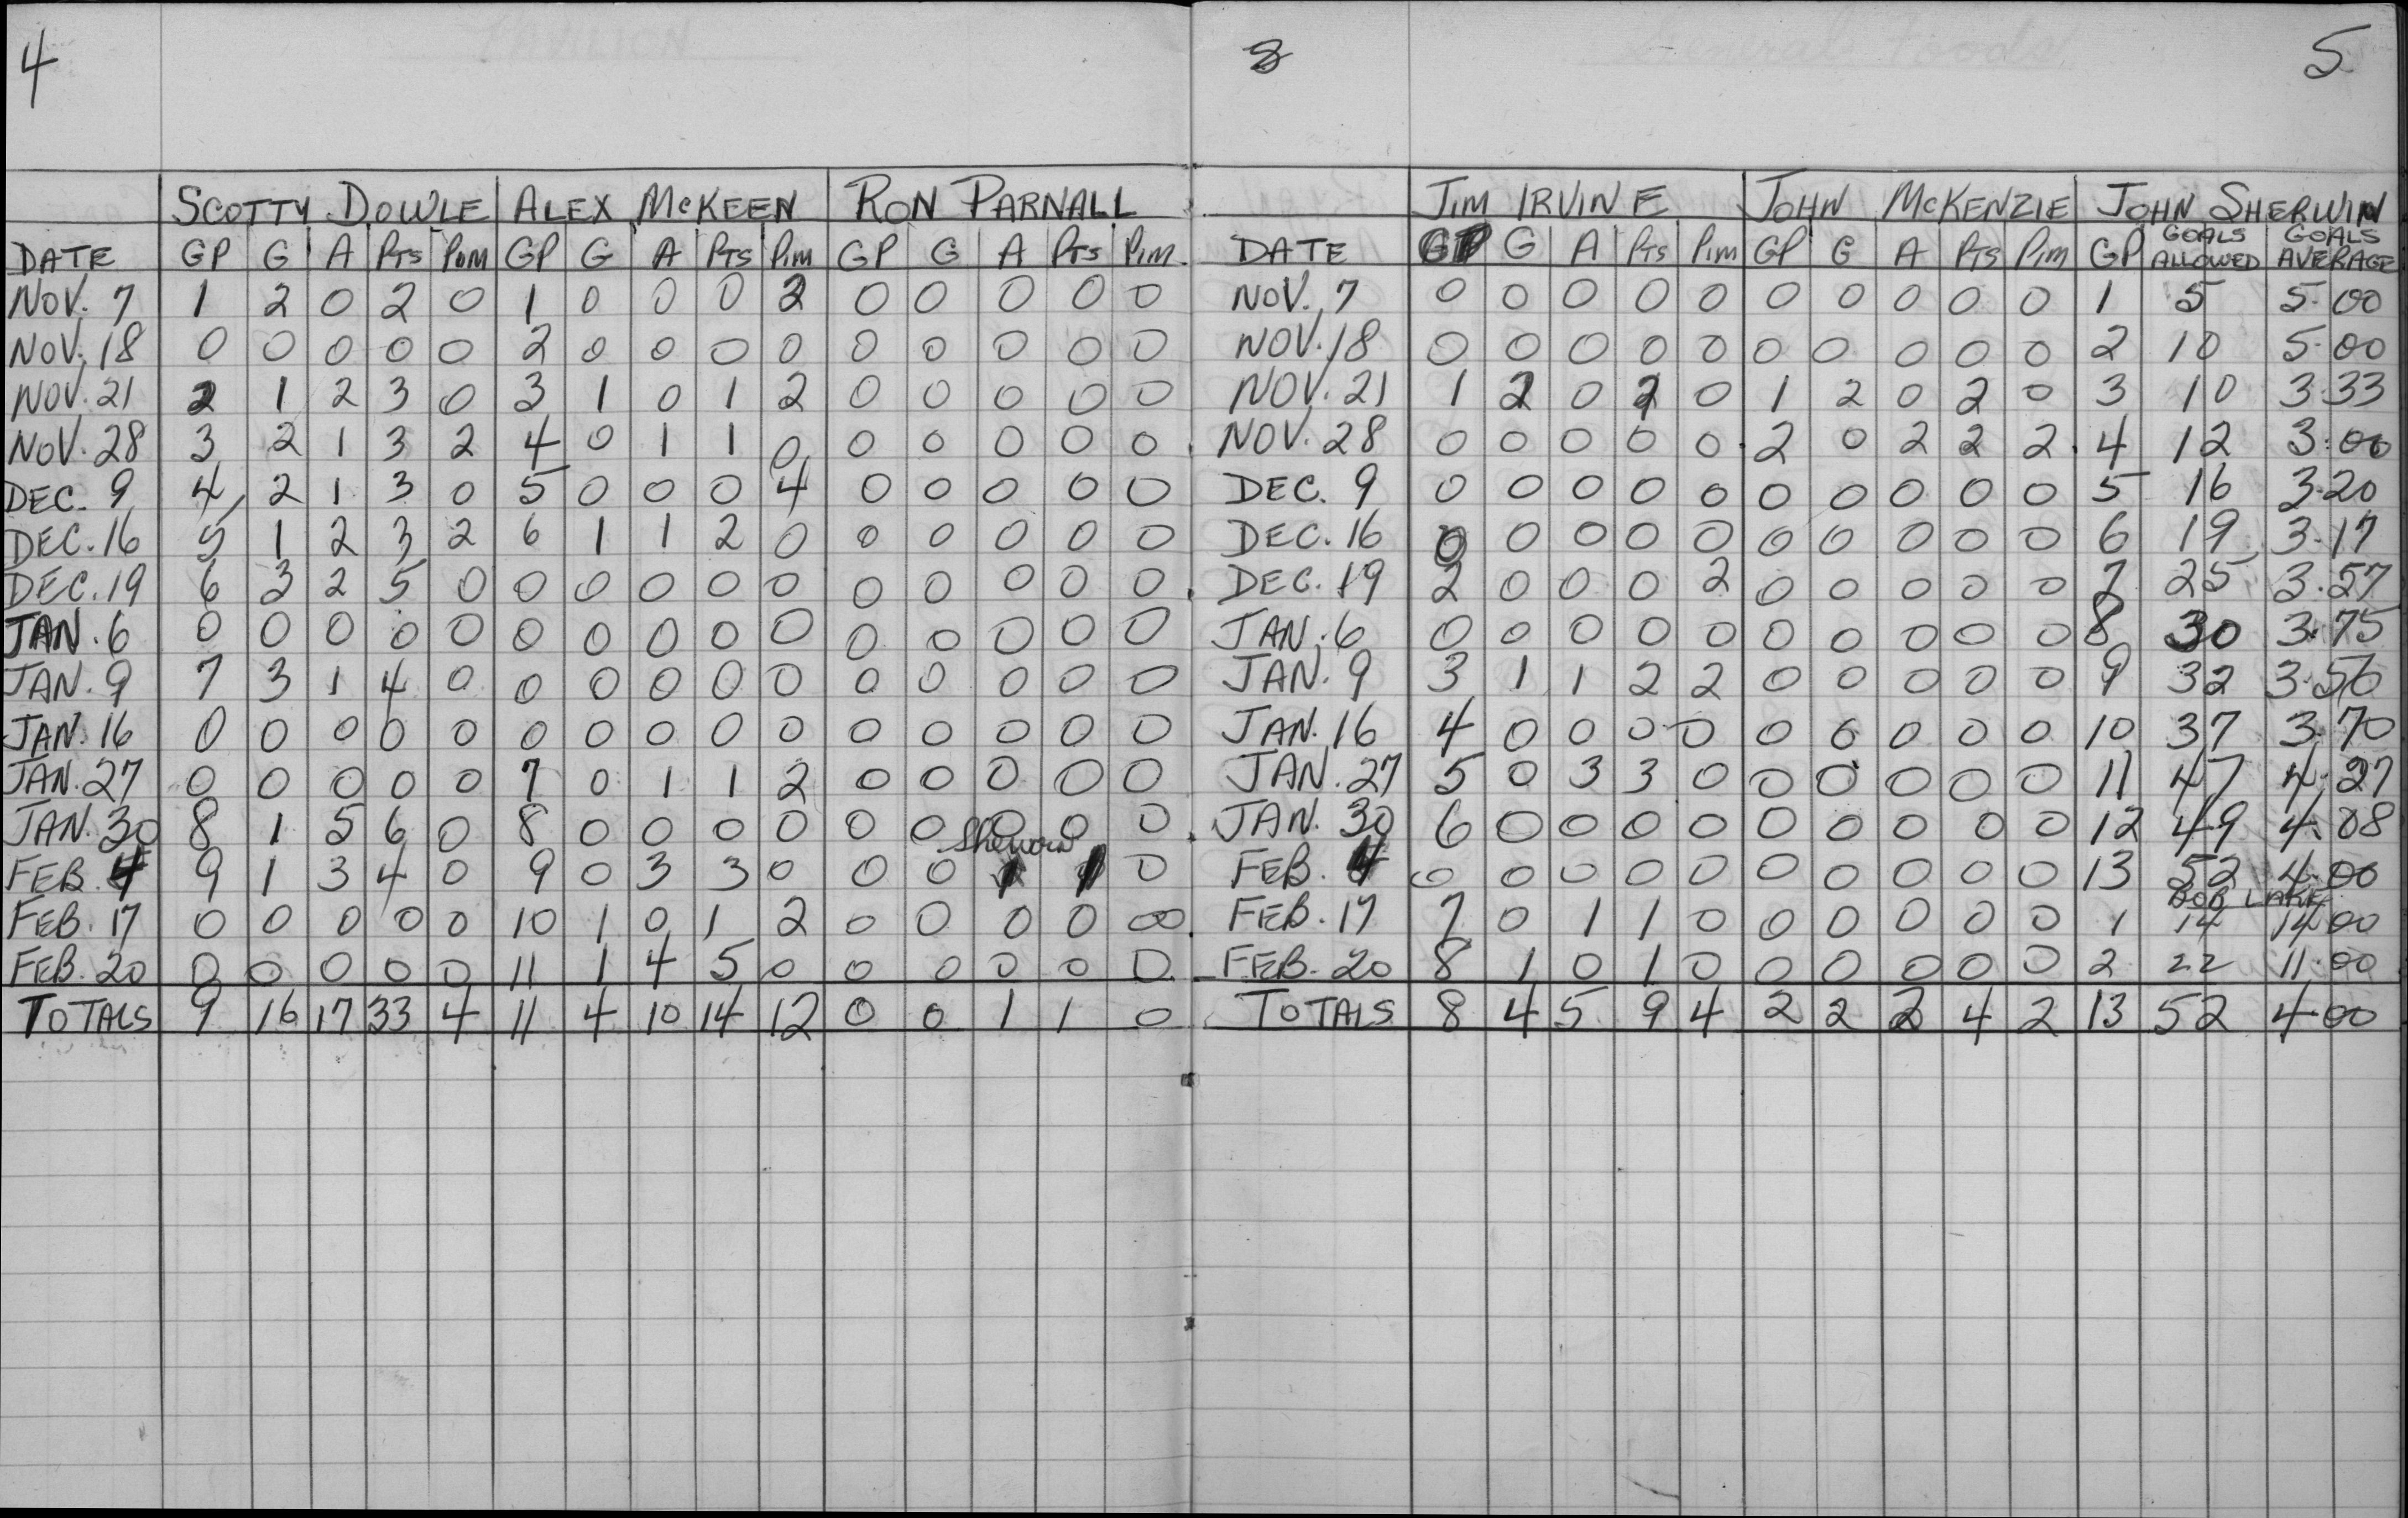 4
SCOTTY DOWLE ALEX McKEEN RON PARNALL
DATE GP G A Pts Pim GP G A Pts Pim GP G A Pts Pim
NOV. 7 1 2 0 2 0 1 0 0 0 2 0 0 0 0 0
NOV. 18 0 0 0 0 0 2 0 0 0 0 0 0 0 0 0
NOV. 21 2 1 2 3 0 3 1 0 1 2 0 0 0 0 0
NOV. 28 3 2 1 3 2 4 0 1 1 0 0 0 0 0 0
DEC. 9 4 2 1 3 0 5 0 0 0 4 0 0 0 0 0
DEC. 16 5 1 2 3 2 6 1 1 2 0 0 0 0 0 0
DEC. 19 6 3 2 5 0 0 0 0 0 0 0 0 0 0 0
JAN. 6 0 0 0 0 0 0 0 0 0 0 0 0 0 0 0
JAN. 9 7 3 1 4 0 0 0 0 0 0 0 0 0 0 0
JAN. 16 0 0 0 0 0 0 0 0 0 0 0 0 0 0 0
JAN. 27 0 0 0 0 0 7 0 1 1 2 0 0 0 0 0
JAN. 30 8 1 5 6 0 8 0 0 0 0 0 0 0 0 0
Sherwin
FEB. 4 9 1 3 4 0 9 0 3 3 0 0 0 1 1 0
FEB. 17 0 0 0 0 0 10 1 0 1 2 0 0 0 0 00
FEB. 20 0 0 0 0 0 11 1 4 5 0 0 0 0 0 0
TOTALS 9 16 17 33 4 11 4 10 14 12 0 0 1 1 0
5
JIM IRVINE JOHN McKENZIE JOHN SHERWIN
DATE GP G A Pts Pim GP G A Pts Pim GP GOALS ALLOWED GOALS AVERAGE
NOV. 7 0 0 0 0 0 0 0 0 0 0 1 5 5.00
NOV. 18 0 0 0 0 0 0 0 0 0 0 2 10 5.00
NOV. 21 1 2 0 2 0 1 2 0 2 0 3 10 3.33
NOV. 28 0 0 0 0 0 2 0 2 2 2 4 12 3.00
DEC. 9 0 0 0 0 0 0 0 0 0 0 5 16 3.20
DEC. 16 0 0 0 0 0 0 0 0 0 0 6 19 3.17
DEC. 19 2 0 0 0 2 0 0 0 0 0 7 25 3.57
JAN. 6 0 0 0 0 0 0 0 0 0 0 8 30 3.75
JAN. 9 3 1 1 2 2 0 0 0 0 0 9 32 3.56
JAN. 16 4 0 0 0 0 0 0 0 0 0 10 37 3.70
JAN. 27 5 0 3 3 0 0 0 0 0 0 11 47 4.27
JAN. 30 6 0 0 0 0 0 0 0 0 0 12 49 4.08
FEB. 4 0 0 0 0 0 0 0 0 0 0 13 52 4.00
BOB LAKE
FEB. 17 7 0 1 1 0 0 0 0 0 0 1 14 14.00
FEB. 20 8 1 0 1 0 0 0 0 0 0 2 22 11.00
TOTALS 8 4 5 9 4 2 2 2 4 2 13 52 4.00